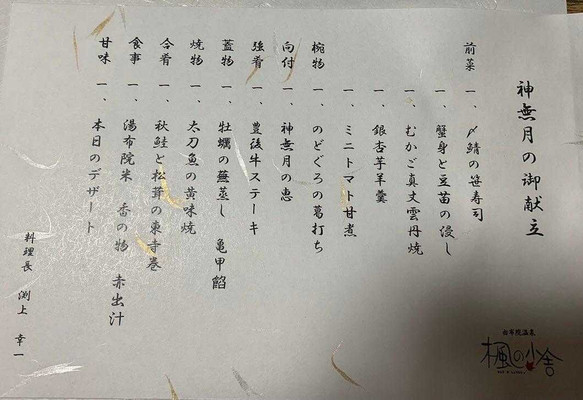 神無月の御献立
前菜 一、〆鯖の笹寿司
一、蟹身と豆苗の浸し
一、むかご真丈雲丹焼
一、銀杏芋羊羹
一、ミニトマト甘煮
椀物 一、のどぐろの葛打ち
向付 一、神無月の恵
強肴 一、豊後牛ステーキ
蓋物 一、牡蠣の蕪蒸し 亀甲餡
焼物 一、太刀魚の黄味焼
合肴 一、秋鮭と松茸の東寺巻
食事 一、湯布院米 香の物 赤出汁
甘味 一、本日のデザート
料理長 渕上 幸一
由布院温泉
楓の小舎